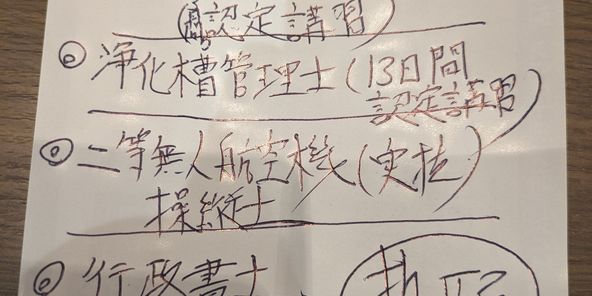 認定講習)
◎ 浄化槽管理士(13日間
認定講習)
◎ 二等無人航空機(実技)
操縦士
◎ 行政書士